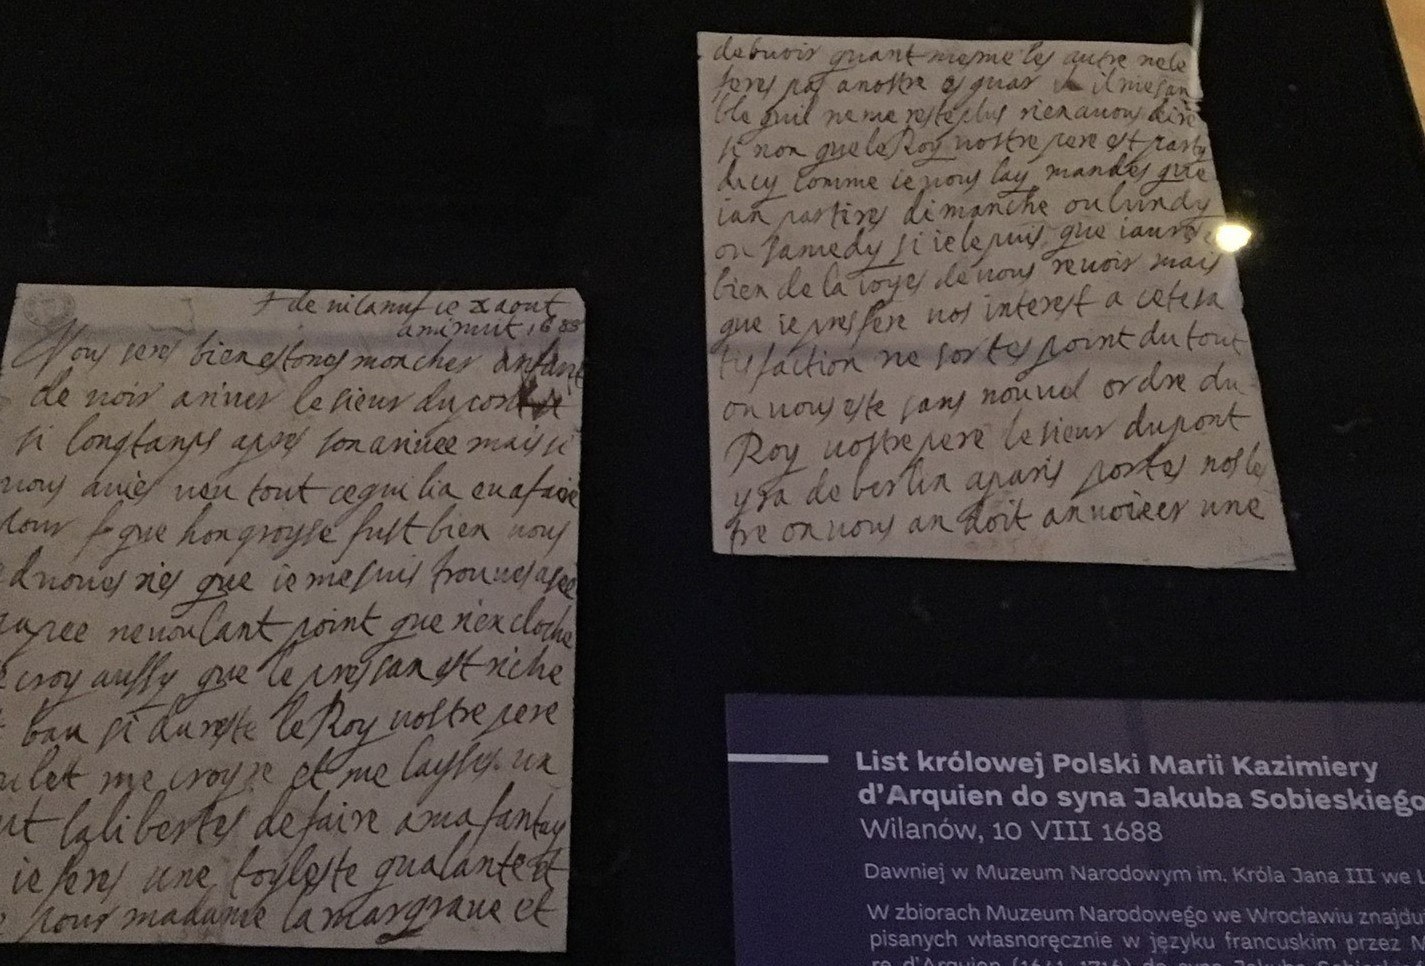 de nilanuf ce x aout
a minuit 1688
Vous seres bien estones mon cher anfant
de voir ariver le sieur du
si longtamps apres son arivee mais si
vous avies veu tout ce qui lia eu a faire
pour que hongroyse fust bien vous
que ie me suis trouves
ne voulant point que rien cloche
croy aussy que le presan est riche
bau si du reste le Roy vostre pere
me croyre et me laysser un
la libertes de faire a ma fantay
ie feres une toyleste gualante et
pour madame la margrave et
debvoir quant mesme les autre ne le
feres pas a nostre esguar il me san
ble quil ne me reste plus rien a vous dire
si non que le Roy vostre pere est party
dicy comme ie vous lay mandes que
ian partires dimanche ou lundy
ou samedy si ie le puis que iaures
bien de la ioyes de vous revoir mais
que ie presfere vos interest a cete sa
tisfaction ne sortes point du tout
ou vous este sans nouvel ordre du
Roy vostre pere le sieur dupont
yra de berlin a paris portes nos le
tre on vous an doit anvoieer une
List królowej Polski Marii Kazimiery
d'Arquien do syna Jakuba Sobieskiego
Wilanów, 10 VIII 1688
Dawniej w Muzeum Narodowym im. Króla Jana III we
W zbiorach Muzeum Narodowego we Wrocławiu
pisanych własnoręcznie w języku francuskim przez
d'Arquien (1641-1716) do syna Jakuba